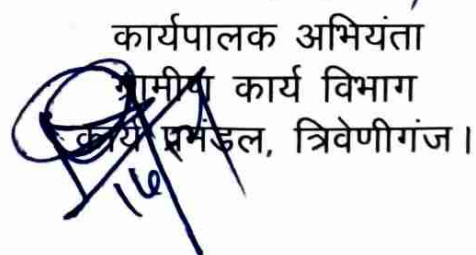 कार्यपालक अभियंता
ग्रामीण कार्य विभाग
कार्य प्रमंडल, त्रिवेणीगंज।